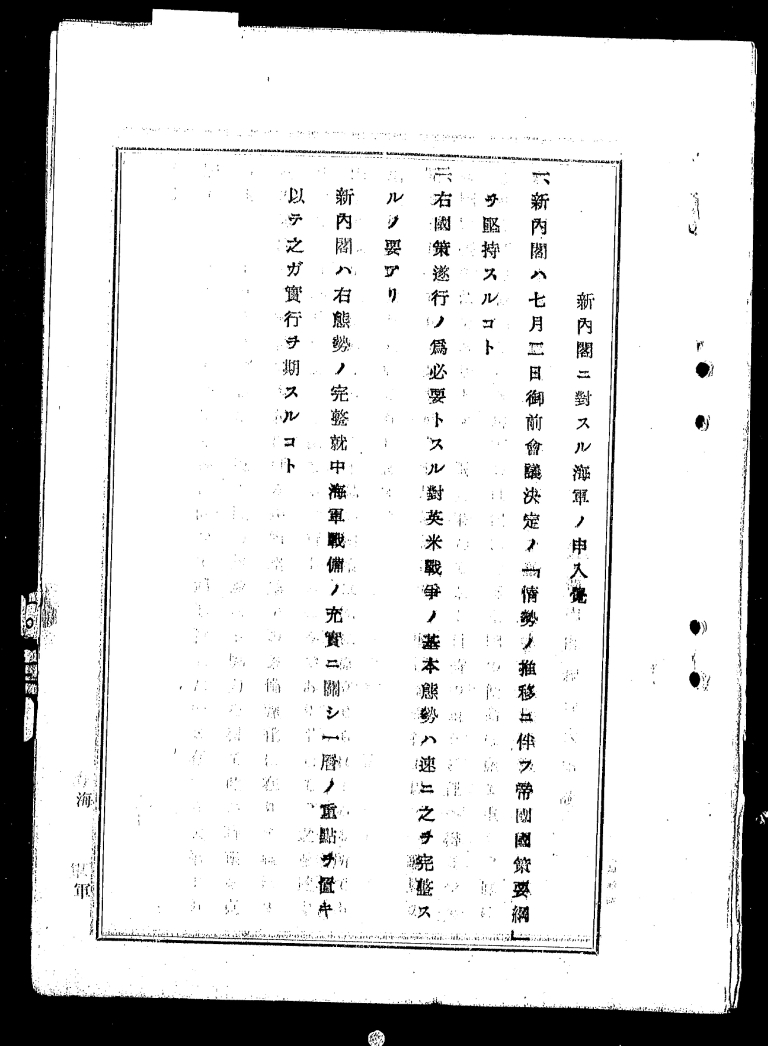 新內閣ニ對スル海軍ノ申入覺
一、新內閣ハ七月二日御前會議決定ノ「情勢ノ推移ニ伴フ帝國國策要綱」
ヲ堅持スルコト
二、右國策遂行ノ爲必要トスル對英米戰爭ノ基本態勢ハ速ニ之ヲ完整ス
ルノ要アリ
新內閣ハ右態勢ノ完整就中海軍戰備ノ充實ニ關シ一層ノ重點ヲ置キ
以テ之ガ實行ヲ期スルコト
海
軍